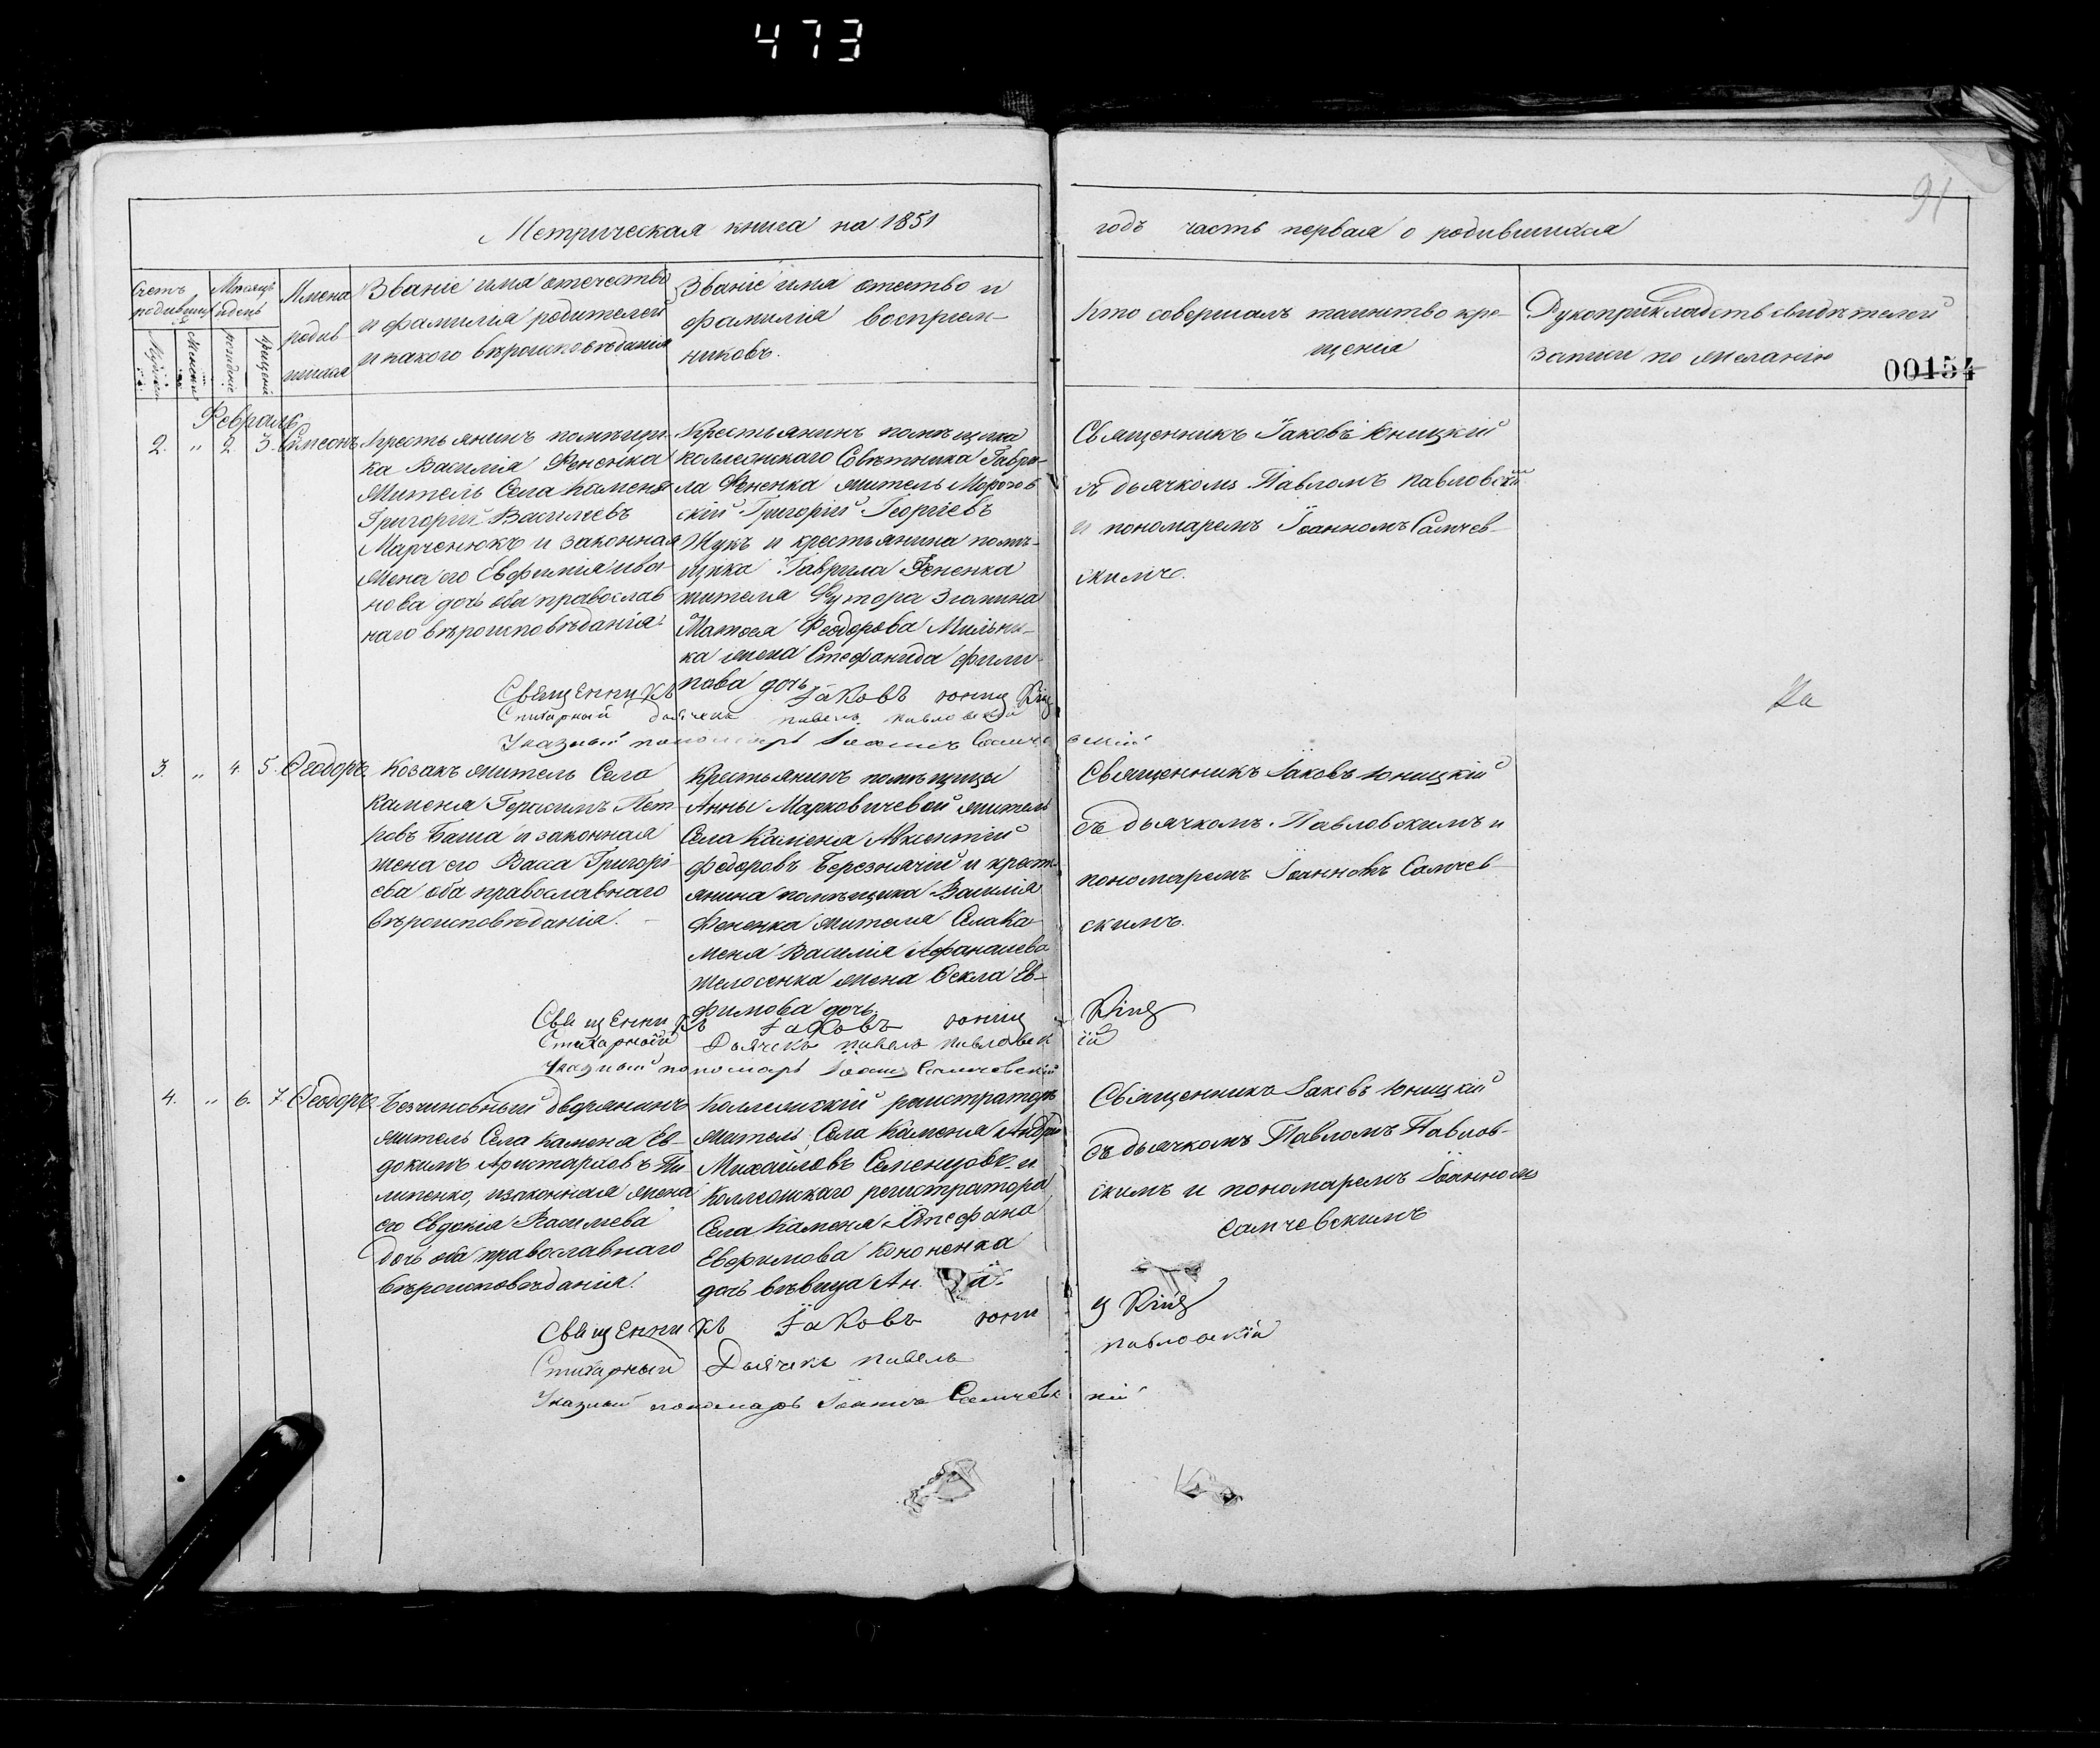 473
91
Метрическая книга на 1851
годъ часть первая о родившихся
Счетъ родивших
Мѣсяцъ и день
Имена родившихся
Званіе имя отечество
и фамилія родителей
и какого вѣроисповѣданія
Званіе имя отество и
фамилія восприем-
никовъ.
Кто совершалъ таинство кре-
щенія
Рукоприкладств свидѣтелей
записи по желанію
00154
рожденіе
крещеніе
Февраль
2. " 2. 3. Симеонъ
Крестьянинъ помѣщи-
ка Василія Фененка
житель Села Каменя
Григорій Василіевъ
Марченюкъ и законная
жена его Евфимія ива-
нова дочь оба православ
наго вѣроисповѣданія.
Крестьянинъ помѣщика
коллежскаго Совѣтника Гаври-
ла Фененка житель Морозов
скій Григорій Георгіевъ
Жукъ и крестьянина помѣ-
щика Гаврила Фененка
жителя Хутора
Матвея Феодорова Мильни-
ка жена Стефанида фили-
пова дочь
Священникъ Іаковъ Юницкій
съ дьячкомъ Павломъ Павловскій
и пономаремъ Іоанномъ Самчев-
скимъ.
Священникъ Іаковъ юницкій
Стихарный дьячекъ павелъ павловскій
Указный пономарь Іоаннъ Самчевскій
На
3. " 4. 5. Ѳеодоръ
Козакъ житель Села
Каменя Герасимъ Пет-
ровъ Баша и законная
жена его Васса Григорі
ева оба православнаго
вѣроисповѣданія.
Крестьянинъ помѣщицы
Анны Марковичевой житель
Села Каменя Авксентій
Федоровъ Березнячій и крест-
янина помѣщика Василія
Фененка жителя Села Ка-
меня Василія Афанасіева
жена Ѳекла Ев-
фимова дочь
Священникъ Іаковъ Юницкій
съ дьячкомъ Павловскимъ и
пономаремъ Іоанномъ Самчев
скимъ.
Священникъ Іаковъ юницкій
Стихарный Дьячекъ павелъ павловскій
Указный пономарь Іоаннъ Самчевскій
4. " 6. 7. Ѳеодоръ
Безчиновный дворянинъ
житель Села Каменя Ев-
докимъ Аристарховъ Пи
липенко, и законная жена
его Евдокія Василіева
дочь оба православнаго
вѣроисповѣданія.
Коллежскій регистраторъ
житель Села Каменя Андрей
Михайловъ Семенцовъ и
Коллежскаго регистратора
Села Каменя Стефана
Евфимова Кононенка
дочь дѣвица Ан
Священникъ Іаковъ Юницкій
съ дьячкомъ Павломъ Павлов-
скимъ и пономаремъ Іоанномъ
самчевскимъ
Священникъ Іаковъ юницкій
Стихарный Дьячекъ павелъ павловскій
Указный пономарь Іоаннъ Самчевскій